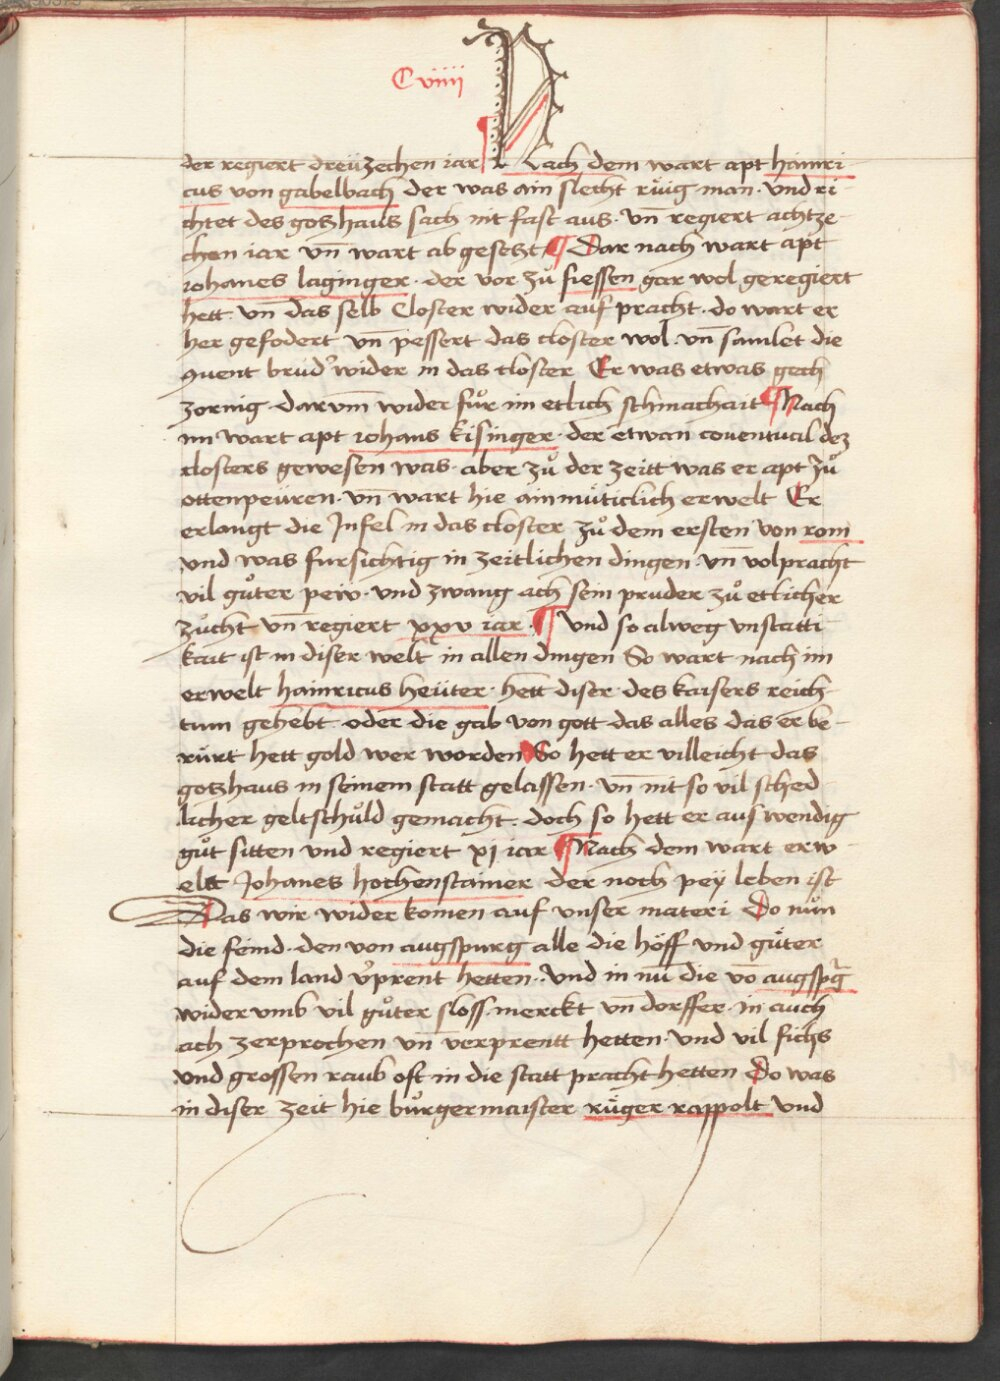 C viiij
der regiert dreüzechen iar Nach dem wart apt hainri-
cus von gabelbach der was ain slecht rüig man · vnd ri-
chtet des gotzhaus sach nit fast aus · vn̄ regiert achtze-
chen iar vn̄ wart ab gesetzt ¶ Dar nach wart apt
iohanes laginger · der vor zů fiessen gar wol geregiert
hett · vn̄ das selb Closter wider auf pracht · do wart er
her gefodert vn̄ pessert das closter wol · vn̄ samlet die
9uent brud᾽ wider in das closter Er was etwas gech
zornig · darvm̄ wider fůr im etlich schmachait ¶ Nach
im wart apt iohans kisinger · der etwan couentual dez
closters gewesen was · aber zů der zeitt was er apt zů
ottenpeüren · vn̄ wart hie ainmüticlich erwelt Er
erlangt die Jnfel in das closter zů dem ersten von rom
vnd was fursichtig in zeitlichen dingen · vn̄ volpracht
vil gůter pew · vnd zwang ach sein pruder zů etlicher
zůcht vn̄ regiert xxv iar · ¶ Vnd so alweg vnstatti
kait ist in diser welt in allen dingen So wart nach im
erwelt hainricus heüter · hett diser · des kaisers reich-
tum gehebt · oder die gab von gott das alles das er be-
rürt hett gold wer worden So hett er villeicht das
gotzhaus in seinem statt gelassen · vn̄ nit so vil sched-
licher geltschůld gemacht · doch so hett er auswendig
gůt sitten vnd regiert xj iar ¶ Nach dem wart erw-
elt Johanes hochenstainer der noch peÿ leben ist
Das wir wider komen auf vnser materi Do nůn
die feind · den von augspurg alle die höff vnd güter
auf dem land v᾽prent hetten · Vnd in nū die vō augspg
wider vmb vil gůter sloss · merckt vn̄ dorffer · in auch
ach zerprochen vn̄ verprentt hetten · vnd vil fichs
vnd grossen raub oft in die statt pracht hetten Do was
in diser zeit hie bůrgermaister rüger rappolt vnd